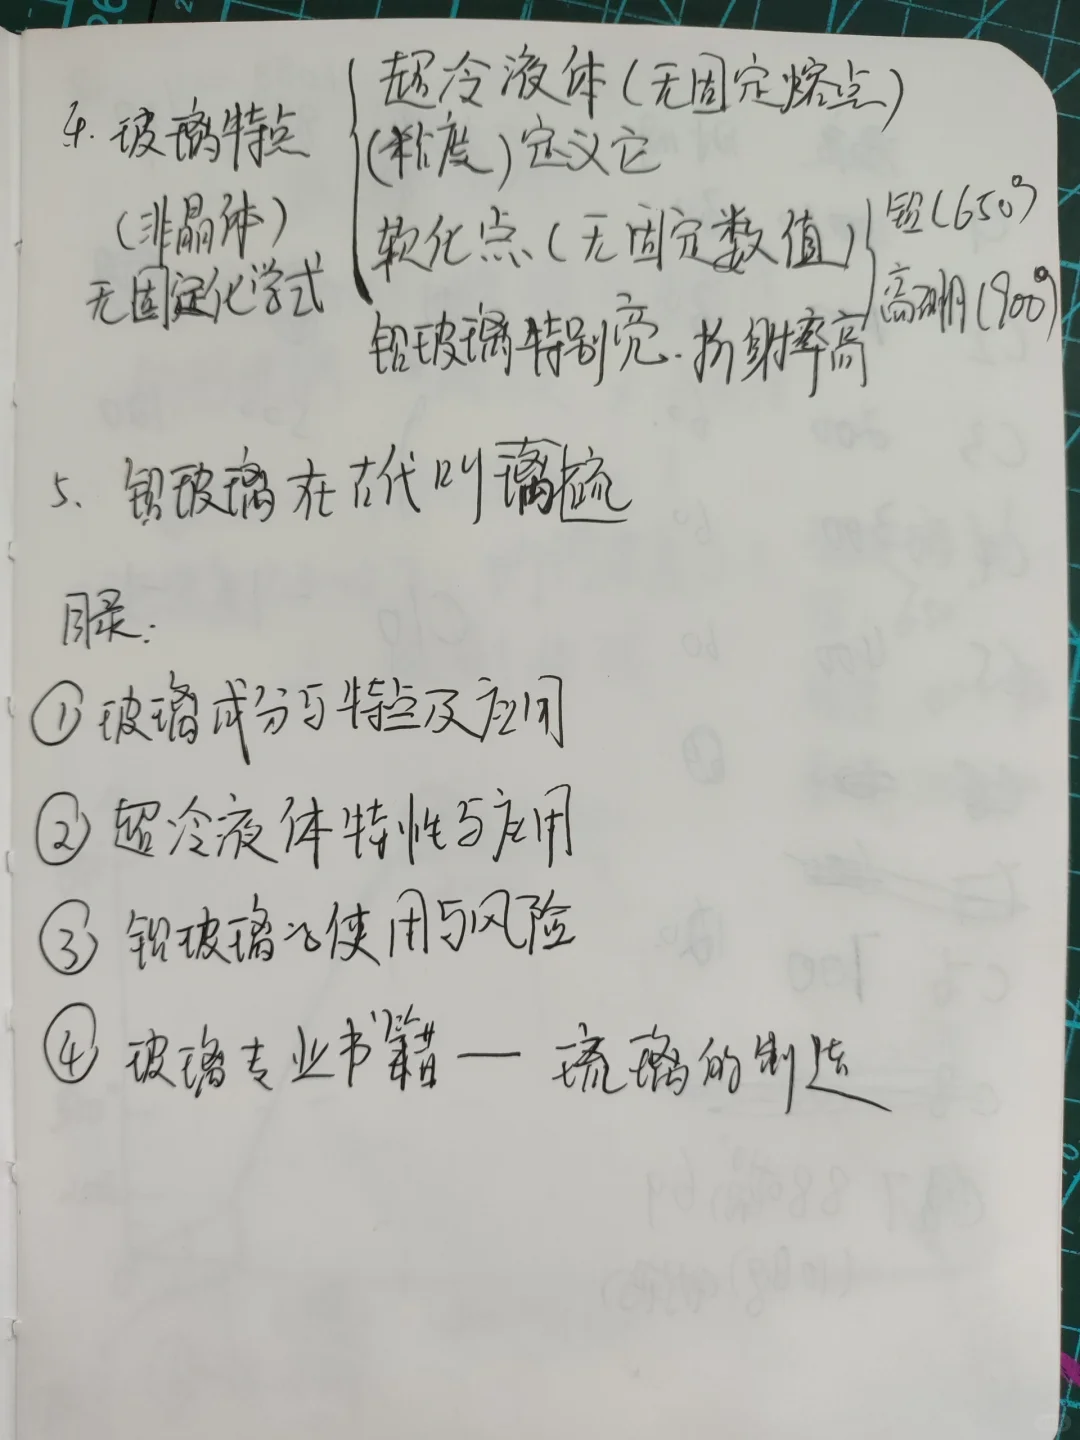 4. 玻璃特点
(非晶体)
无固定化学式
超冷液体(无固定熔点)
(粘度)定义它
软化点(无固定数值)
铅(650°)
高硼(900°)
铅玻璃特别亮.折射率高
5、铅玻璃在古代叫璃琉
目录:
① 玻璃成分与特点及应用
② 超冷液体特性与应用
③ 铅玻璃的使用与风险
④ 玻璃专业书籍—琉璃的制造